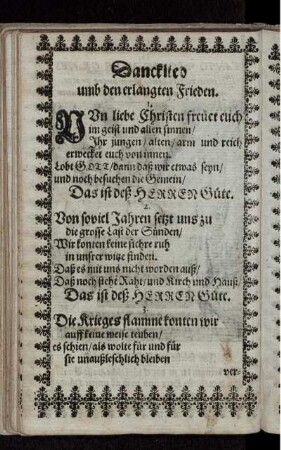 Dancklied
umb den erlangten Frieden.
1.
NUn liebe Christen freuet euch
im geist und allen sinnen/
Ihr jungen/alten/arm und reich
erwecket euch von innen.
Lobt GOTT/dann daß wir etwas seyn/
und noch besuchen die Gemein/
Das ist deß HERREN Güte.
2.
Von soviel Jahren setzt uns zu
die grosse Last der Sünden/
Wir konten keine sichre ruh
in unser witze finden.
Daß es mit uns nicht worden auß/
Daß noch steht Raht/und Kirch und Hauß/
Das ist deß HERREN Güte.
3.
Die Krieges flamme konten wir
auff keine weise teuben/
es schien/als wolte für und für
sie unaußleschlich bleiben
ver-